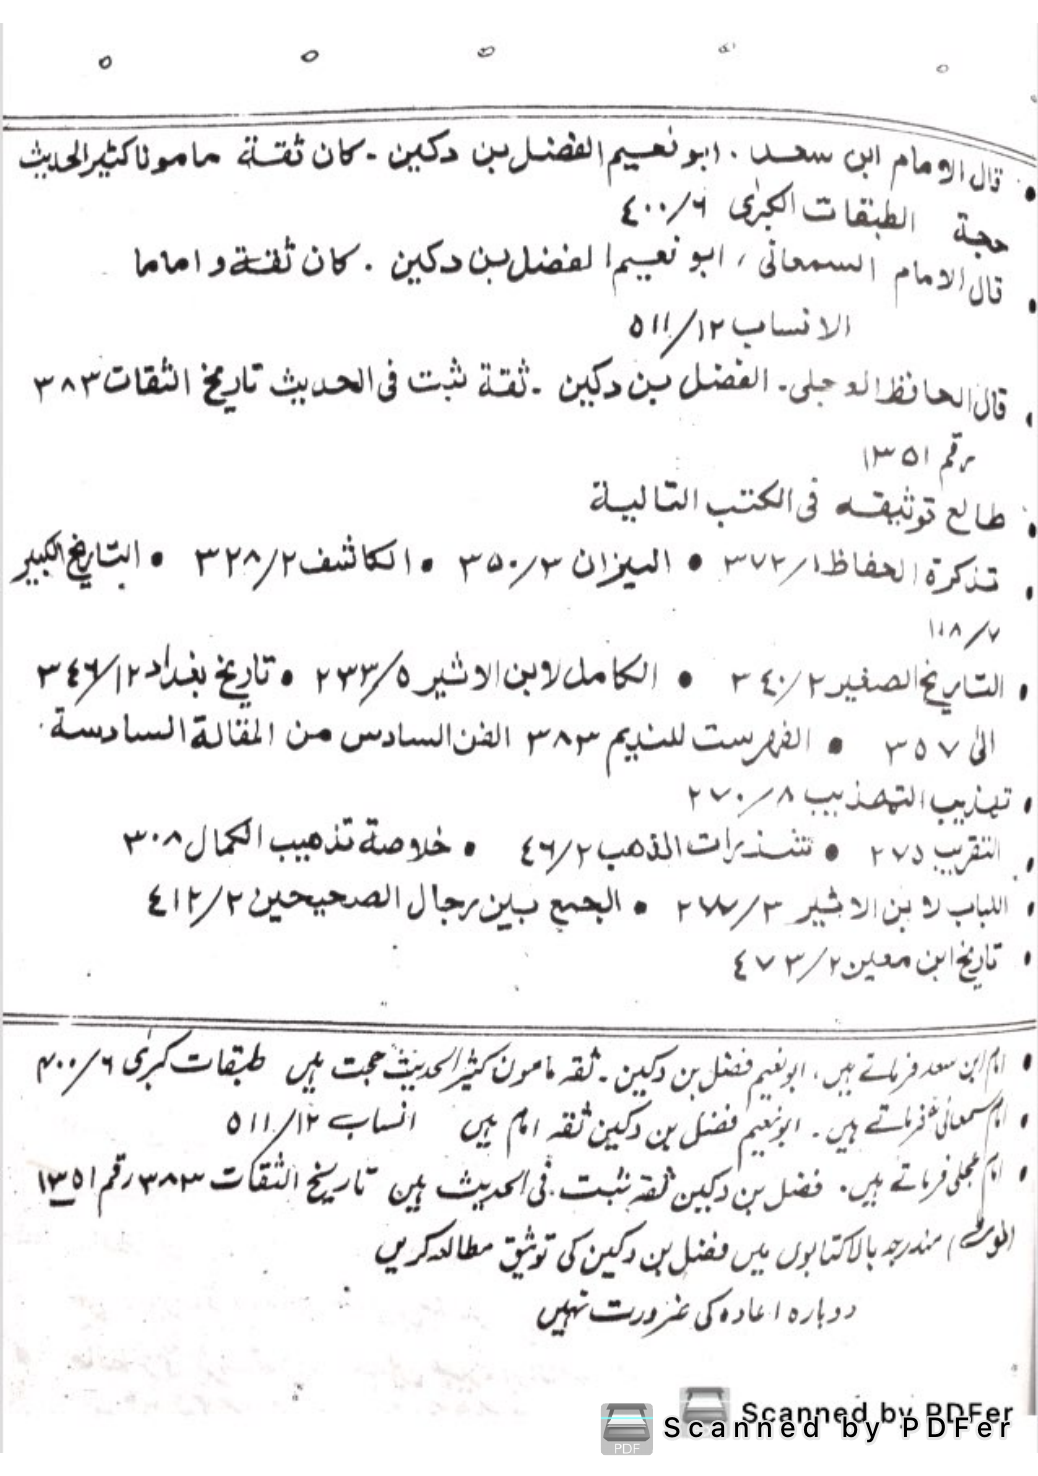 • قال الامام ابن سعد . ابو نعیم الفضل بن دکین ۔ کان ثقة مامونا کثیر الحدیث
حجة الطبقات الکبری ٦/٤٠٠
• قال الامام السمعانی ، ابو نعیم الفضل بن دکین . کان ثقة و اماما
الانساب ١٢/٥١١
• قال الحافظ العجلی ۔ الفضل بن دکین ۔ ثقة ثبت فی الحدیث تاریخ الثقات ٣٨٣
رقم ١٣٥١
• طالع توثیقه فی الکتب التالیة
• تذکرة الحفاظ ١/٣٧٢ • المیزان ٣/٣٥٠ • الکاشف ٢/٣٢٨ • التاریخ الکبیر
٧/١١٨
• التاریخ الصغیر ٢/٣٤٠ • الکامل لابن الاثیر ٥/٢٣٣ • تاریخ بغداد ١٢/٣٤٦
الی ٣٥٧ • الفہرست للندیم ٣٨٣ الفن السادس من المقالة السادسة
• تہذیب التہذیب ٨/٢٧٠
• التقریب ٢٧٥ • شذرات الذهب ٢/٤٦ • خلاصة تذهیب الکمال ٣٠٨
• اللباب لابن الاثیر ٣/ • الجمع بین رجال الصحیحین ٢/٤١٢
• تاریخ ابن معین ٢/٤٧٣
• امام ابن سعد فرماتے ہیں ، ابو نعیم فضل بن دکین ۔ ثقہ مامون کثیر الحدیث حجت ہیں طبقات کبری ٦/۴٠٠
• امام سمعانی فرماتے ہیں ۔ ابو نعیم فضل بن دکین ثقہ امام ہیں انساب ١٢/٥١١
• امام عجلی فرماتے ہیں ۔ فضل بن دکین ثقہ ثبت فی الحدیث ہیں تاریخ الثقات ٣٨٣ رقم ١٣٥١
مندرجہ بالا کتابوں میں فضل بن دکین کی توثیق مطالعہ کریں
دوبارہ اعادہ کی ضرورت نہیں
Scanned by PDFer
Scanned by PDFer
PDF